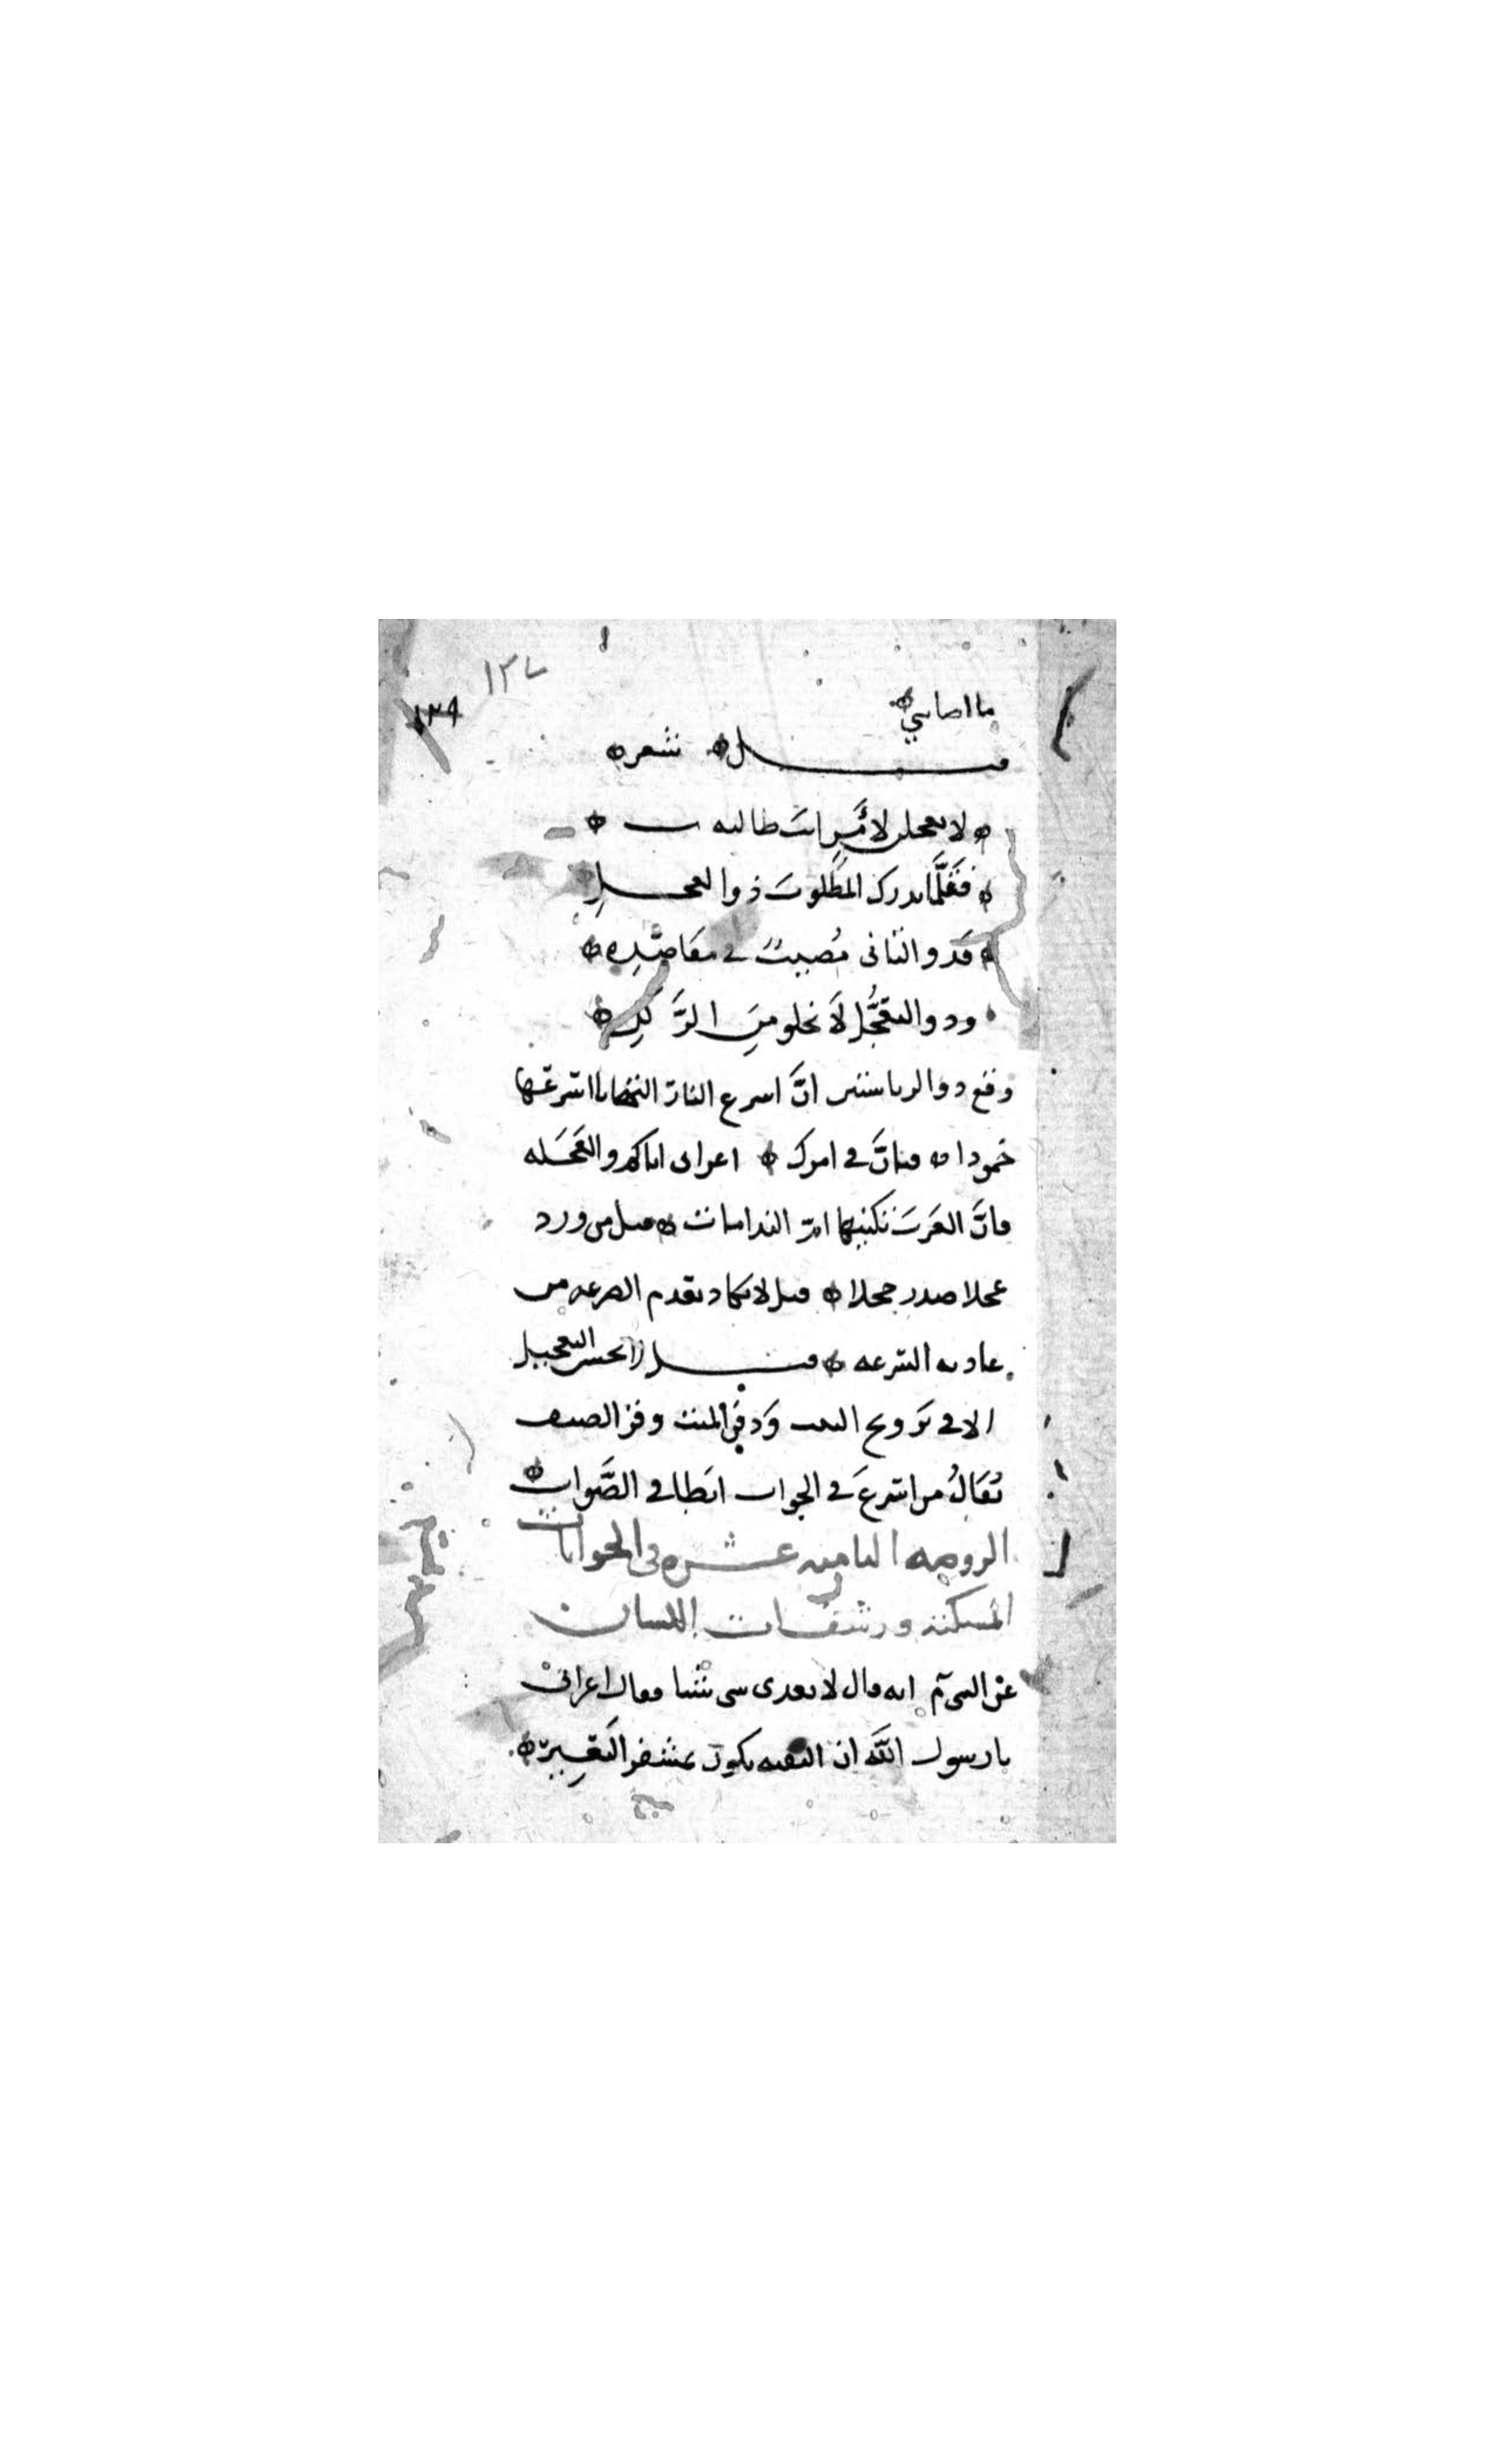 ١٣٧
١٣٩
ما اصابني
قيل شعر
لا تعجلن لأمر انت طالبه
فقلما يدرك المطلوب ذو العجل
فذو التاني مصيب في مقاصده
وذو التعجل لا يخلو من الزلل
وقع ذو الرياستين ان اسرع النار التهابا اسرعها
خمودا فتان في امرك اعرابي اياكم والعجله
فان العرب تكنيها ام الندامات قيل من ورد
عجلا صدر خجلا قيل لا يكاد يعدم الصرعه من
عادته السرعه قيل لا يحسن التعجيل
الا في تزويج البنت ودفن الميت وقرى الضيف
يقال من اسرع في الجواب ابطا في الصواب
الروضه الثامنه عشره في الجوابات
المسكته ورشقات اللسان
عن النبي م انه قال لا يعدى شي شيا فقال اعرابي
يا رسول الله ان النقبه تكون بمشفر البعير